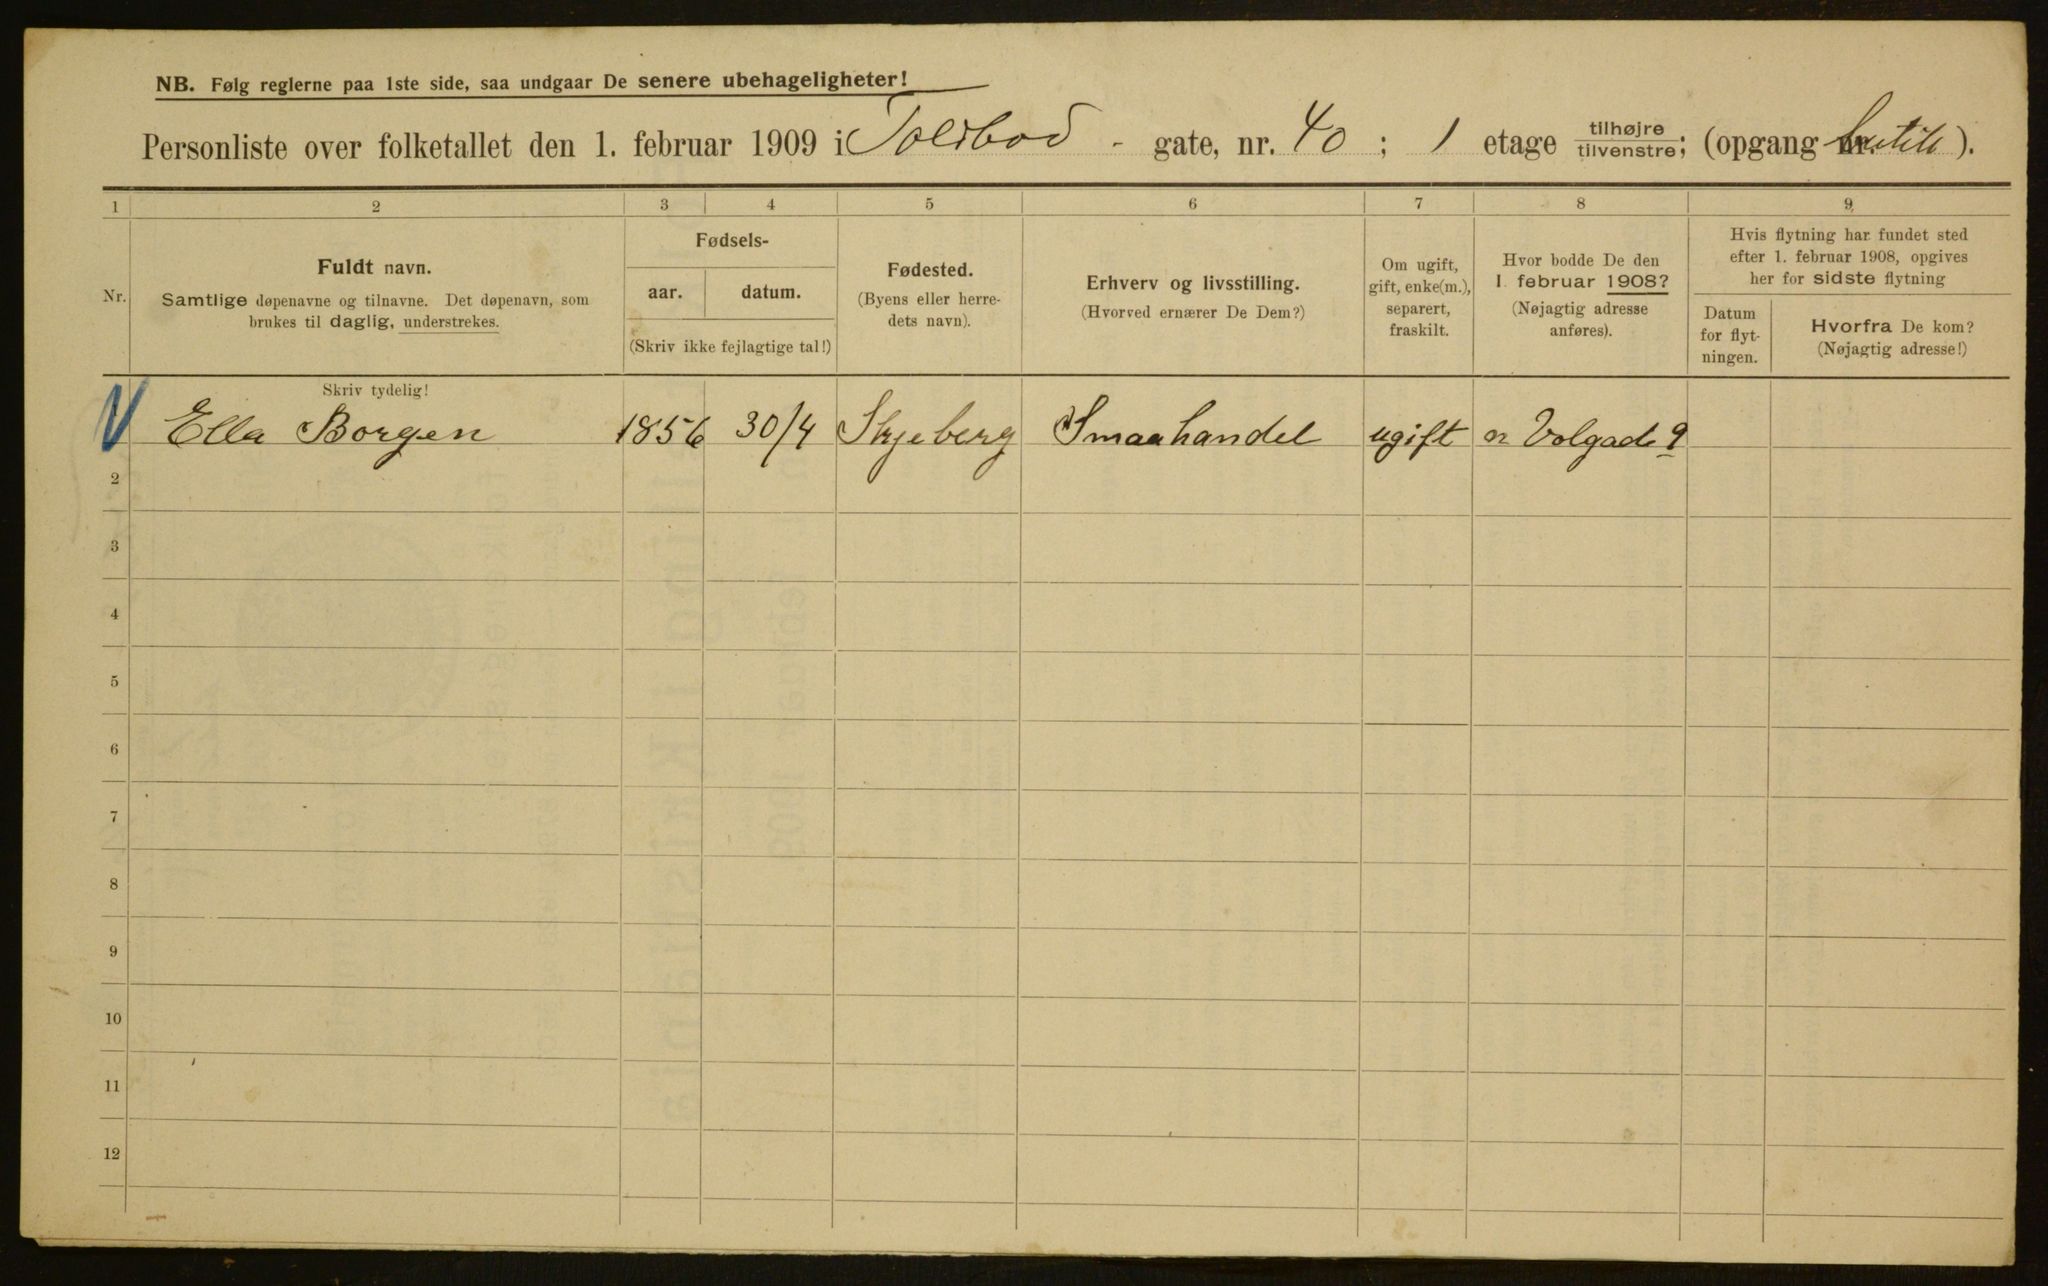 NB. Følg reglerne paa 1ste side, saa undgaar De senere ubehageligheter!
Personliste over folketallet den 1. februar 1909 i Toldbod - gate, nr. 40 ; 1 etage tilhøjre tilvenstre; (opgang nr. butik).
1 2 3 4 5 6 7 8 9
Nr.
Fuldt navn.
Samtlige døpenavne og tilnavne. Det døpenavn, som
brukes til daglig, understrekes.
Fødsels-
aar. datum.
(Skriv ikke fejlagtige tal!)
Fødested.
(Byens eller herre-
dets navn).
Erhverv og livsstilling.
(Hvorved ernærer De Dem?)
Om ugift,
gift, enke(m.),
separert,
fraskilt.
Hvor bodde De den
1. februar 1908?
(Nøjagtig adresse
anføres).
Hvis flytning har fundet sted
efter 1. februar 1908, opgives
her for sidste flytning
Datum
for flyt-
ningen.
Hvorfra De kom?
(Nøjagtig adresse!)
Skriv tydelig!
Ella Borgen 1856 30/4 Skjeberg Smaahandel ugift Volgade 9
2
3
4
5
6
7
8
9
10
11
12